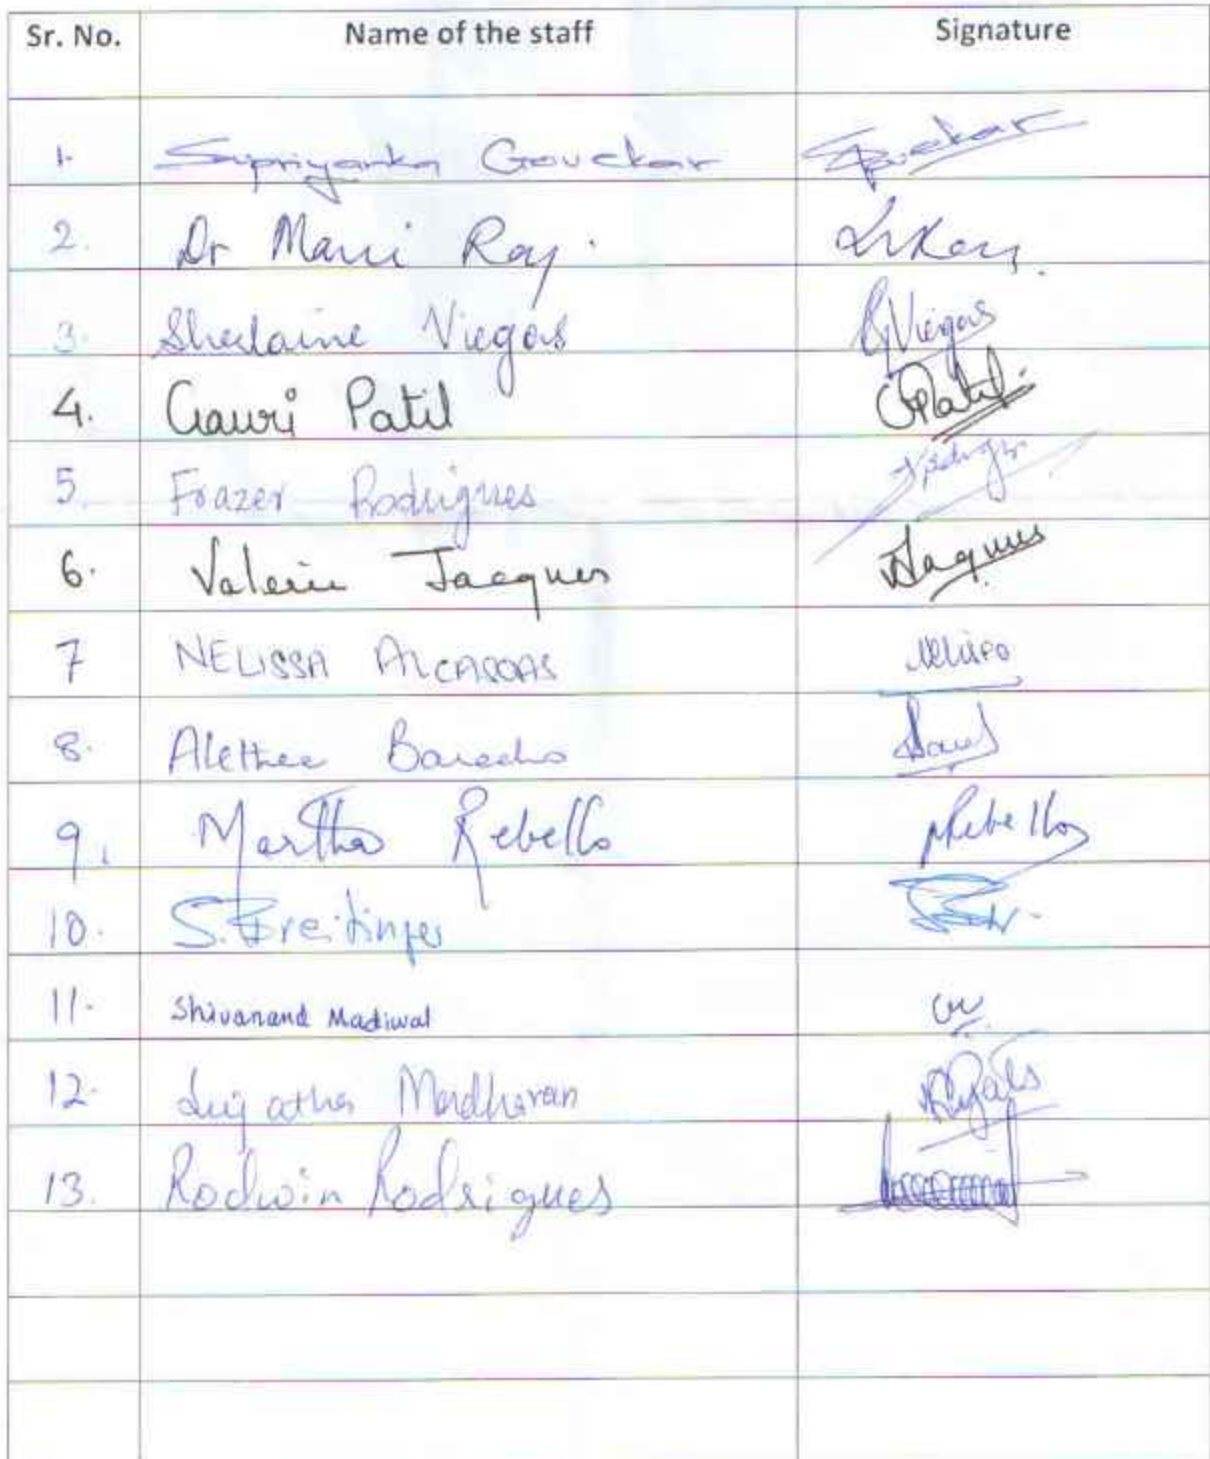 Sr. No. Name of the staff Signature
1. Supriyanka Govekar
2. Dr Marci Raj.
3. Sherlaine Viegas GViegas
4. Gauri Patil GPatil.
5. Frazer Rodrigues
6. Valerie Jacques Jacques
7 NELISSA ALCASOAS
8. Alethea Barreto
9. Martha Rebello MRebello
10. S. Breitinger
11. Shivanand Madiwal
12. Sujatha Madhavan
13. Rodwin Rodrigues